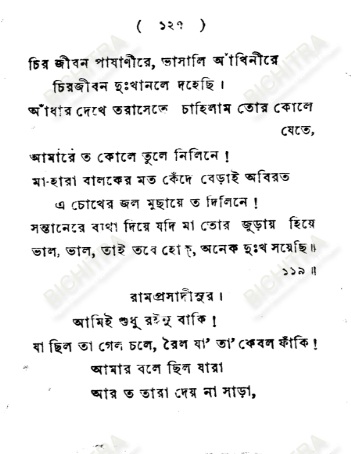 ( ১২৭ )
চির জীবন পাষাণীরে, ভাসালি আঁখিনীরে
চিরজীবন দুঃখানলে দহেছি ।
আঁধার দেখে তরাসেতে চাহিলাম তোর কোলে
যেতে,
আমারে ত কোলে তুলে নিলিনে !
মা-হারা বালকের মত কেঁদে বেড়াই অবিরত
এ চোখের জল মুছায়ে ত দিলিনে !
সন্তানেরে ব্যথা দিয়ে যদি মা তোর জুড়ায় হিয়ে
ভাল, ভাল, তাই তবে হোক্, অনেক দুঃখ সয়েছি॥
১১৯॥
রামপ্রসাদীসুর ।
আমিই শুধু রইনু বাকি !
যা ছিল তা গেল চলে, রৈল যা' তা' কেবল ফাঁকি !
আমার বলে ছিল যারা
আর ত তারা দেয় না সাড়া,
BICHITRA